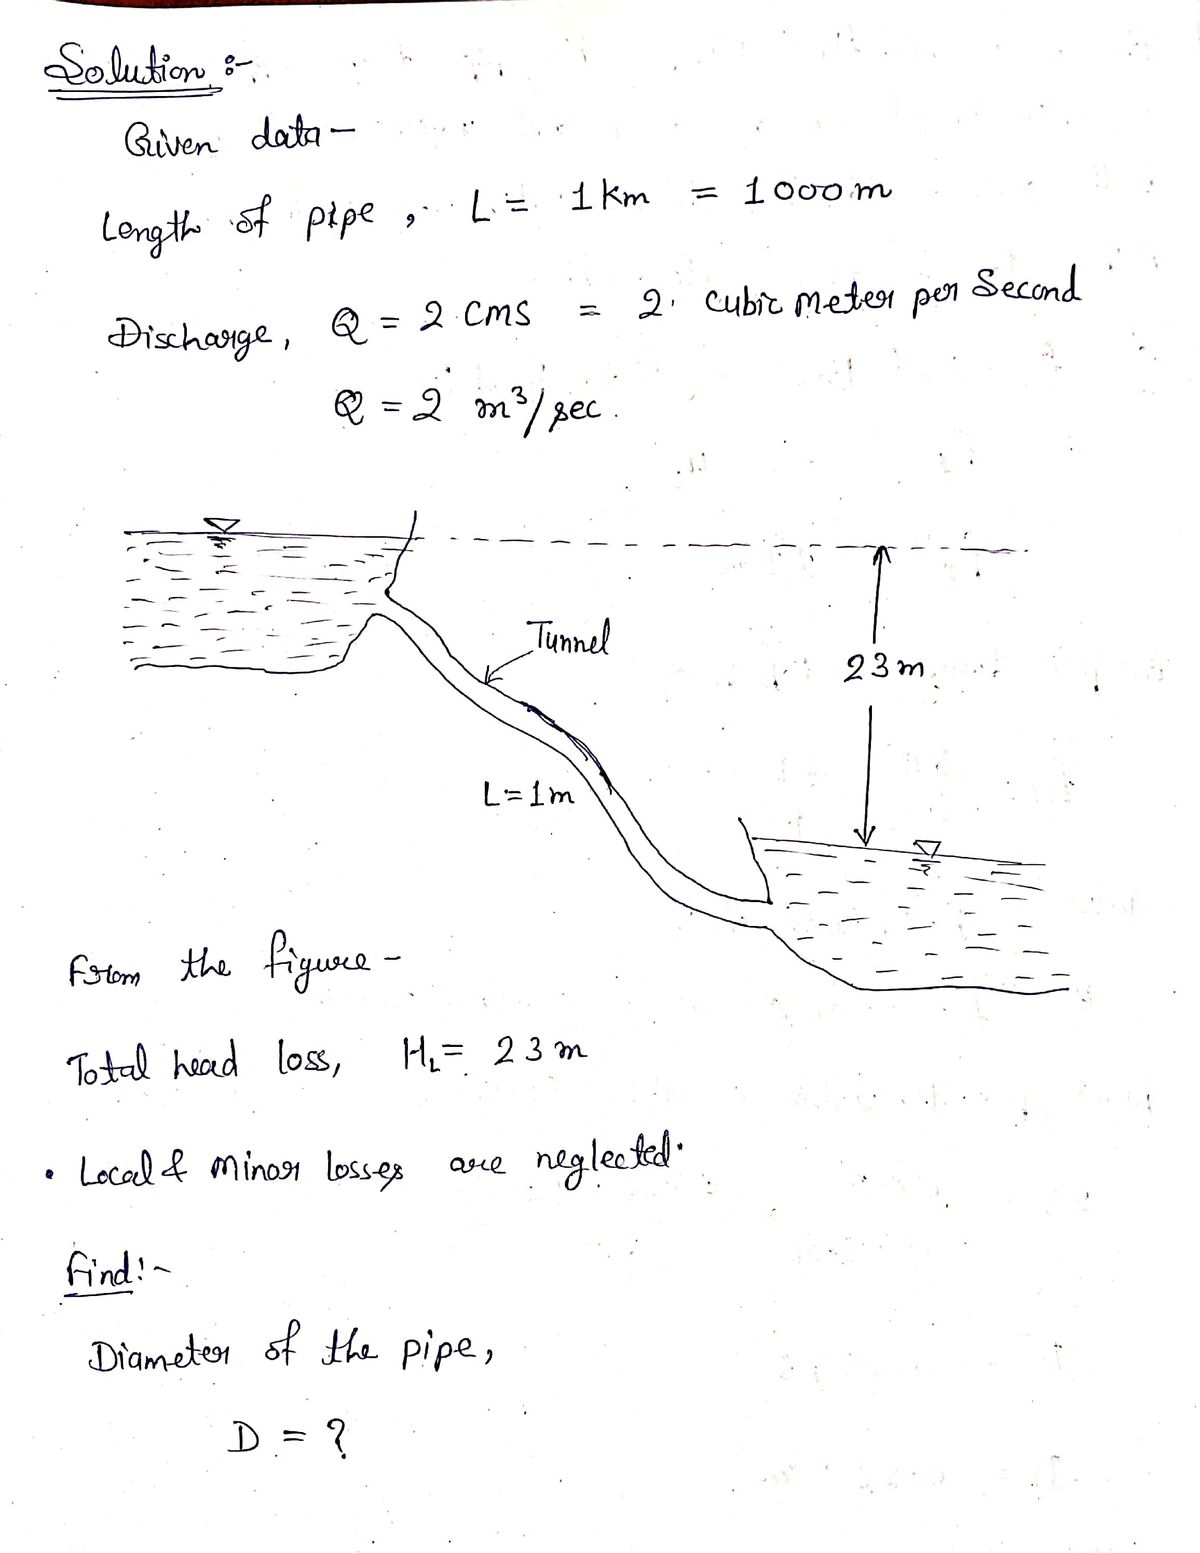 Solution :-
Given data -
Length of pipe, L = 1 km = 1000 m
Discharge, Q = 2 cms = 2 cubic meter per Second
Q = 2 m³/sec.
Tunnel
23 m
L = 1 m
From the figure -
Total head loss, H_L = 23 m
• Local & minor losses are neglected.
Find :-
Diameter of the pipe,
D = ?